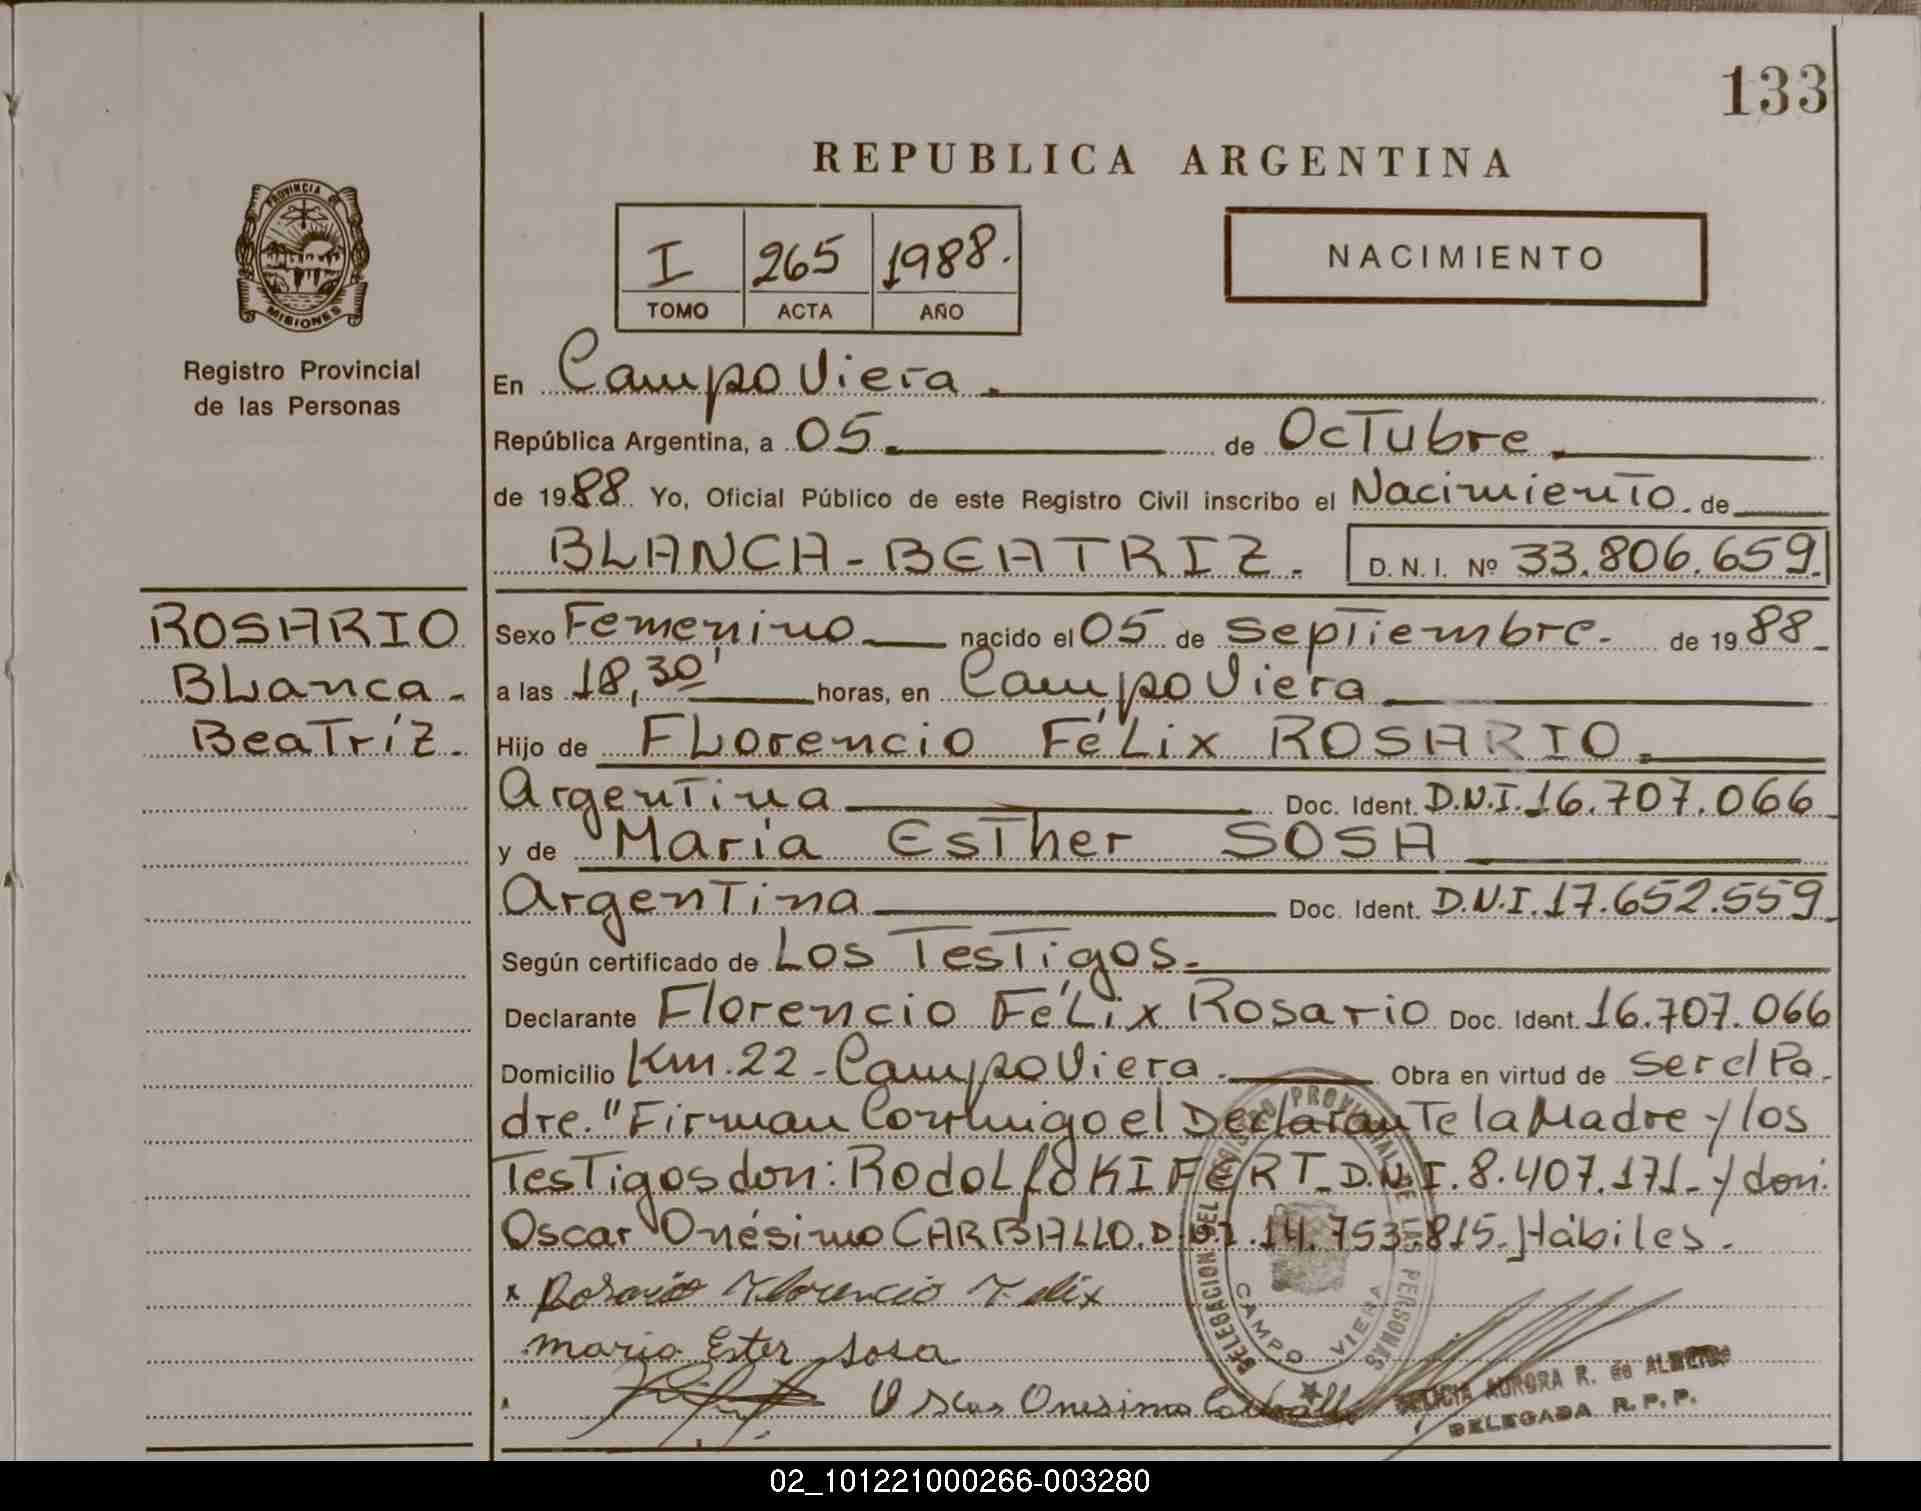 133
REPUBLICA ARGENTINA
PROVINCIA DE
MISIONES
Registro Provincial
de las Personas
I 265 1988.
TOMO ACTA AÑO
NACIMIENTO
En Campo Viera.
República Argentina, a 05. de Octubre
de 1988. Yo, Oficial Público de este Registro Civil inscribo el Nacimiento. de
BLANCA-BEATRIZ. D.N.I. Nº 33.806.659.
ROSARIO
Blanca-
Beatríz.
Sexo Femenino nacido el 05 de Septiembre. de 1988
a las 18,30' horas, en Campo Viera
Hijo de Florencio Félix ROSARIO.
Argentina Doc. Ident. D.N.I. 16.707.066
y de María Esther SOSA
Argentina Doc. Ident. D.N.I. 17.652.559
Según certificado de Los Testigos.
Declarante Florencio Félix Rosario Doc. Ident. 16.707.066
Domicilio Km. 22 - Campo Viera. Obra en virtud de ser el Pa-
dre. "Firman Conmigo el Declarante la Madre y los
Testigos don: Rodolfo KIFERT. D.N.I. 8.407.171- y don:
Oscar Onésimo CARBALLO. D.N.I. 14.753.815. Hábiles.
x Rosario Florencio Felix
maria Ester Sosa
Oscar Onesimo Carballo
DELEGACION DEL REGISTRO PROVINCIAL DE LAS PERSONAS
CAMPO VIERA
DELICIA AURORA R. de ALMEIDA
DELEGADA R.P.P.
02_101221000266-003280